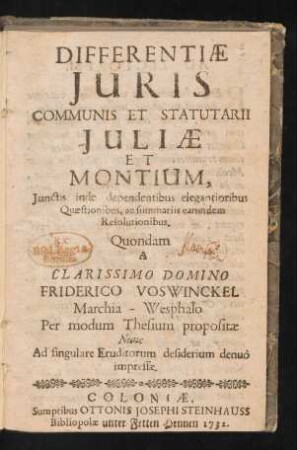 DIFFERENTIÆ
JURIS
COMMUNIS ET STATUTARII
JULIÆ
ET
MONTIUM,
Junctis inde dependentibus elegantioribus
Quæstionibus, ac summariis earundem
Resolutionibus.
Quondam
A
CLARISSIMO DOMINO
FRIDERICO VOSWINCKEL
Marchia - Wesphalo
Per modum Thesium propositæ
Nunc
Ad singulare Eruditorum desiderium denuò
impressæ.
COLONIÆ,
Sumptibus OTTONIS JOSEPHI STEINHAUSS
Bibliopolæ unter Fetten Hennen 1731.